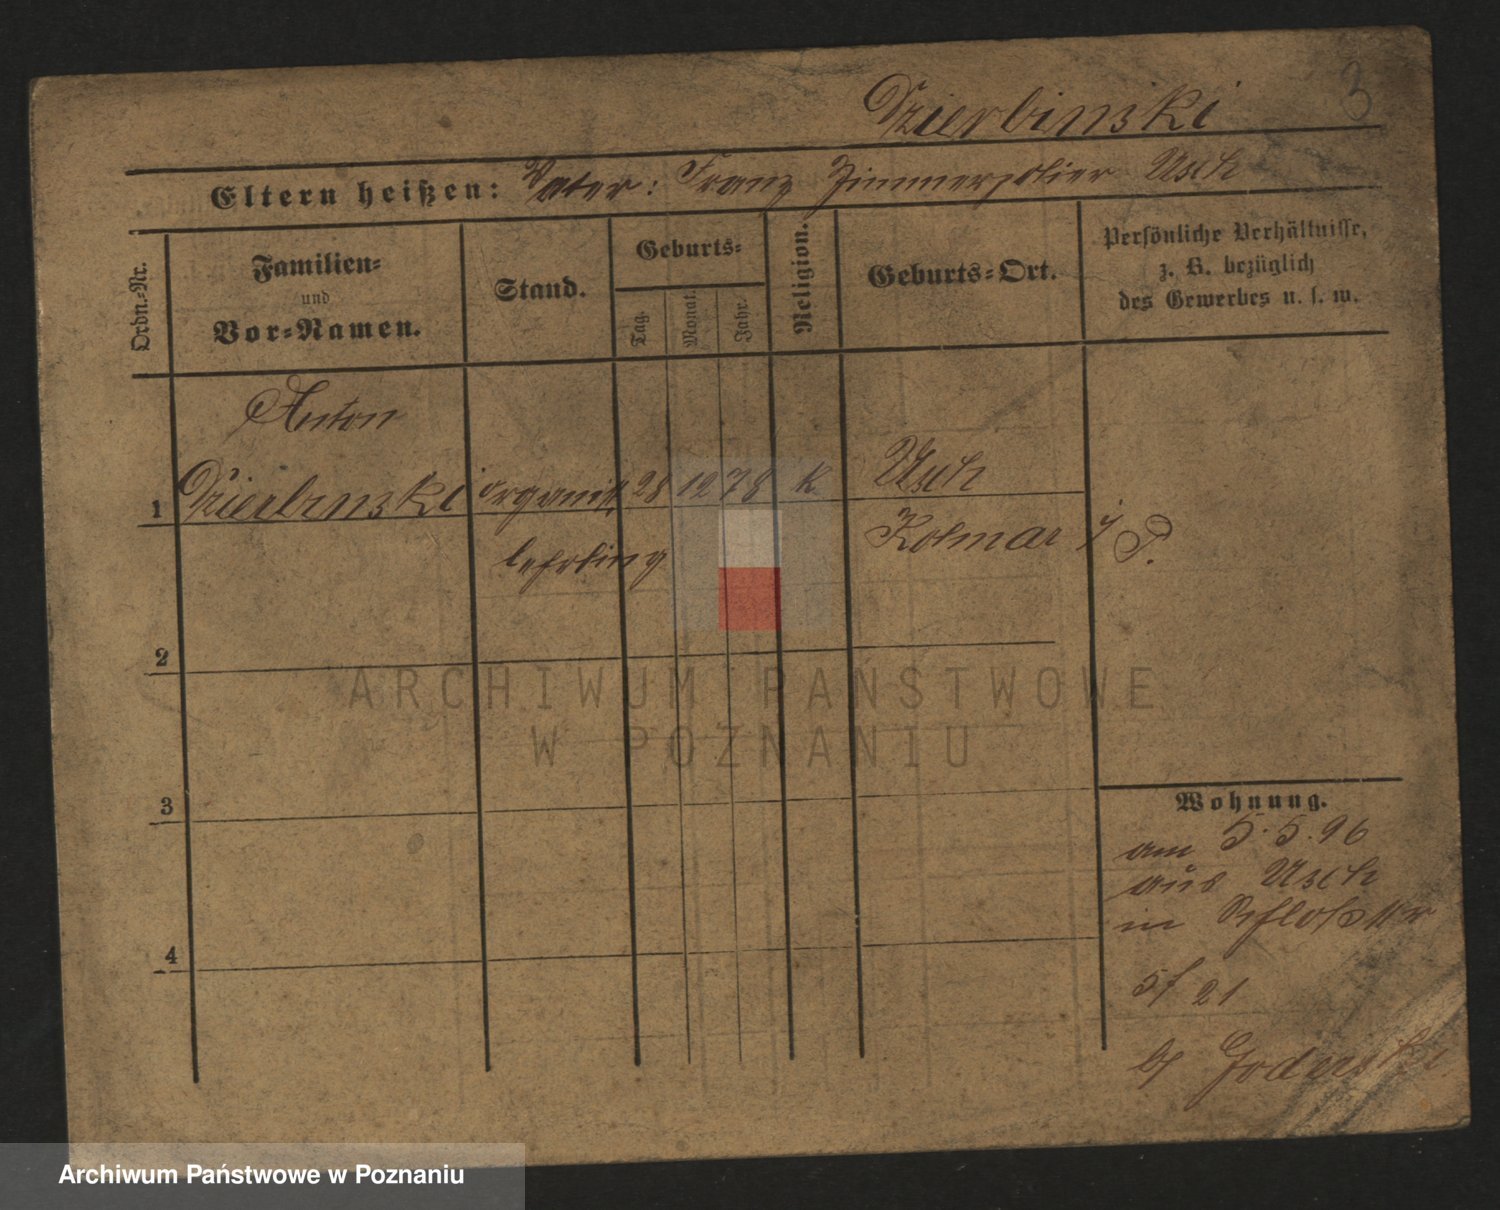 3
Dzierbinski
Eltern heißen: Vater: Franz Zimmerpolier Usch
Ordn.-Nr.
Familien-
und
Vor-Namen.
Stand.
Geburts-
Tag.
Monat.
Jahr.
Religion.
Geburts-Ort.
Persönliche Verhältnisse,
z. B. bezüglich
des Gewerbes u. s. w.
Anton
1 Dzierbinski organist 28 12 78 K Usch
lehrling Kolmar i/P.
2
ARCHIWUM PAŃSTWOWE
W POZNANIU
3
4
Wohnung.
am 5.5.96
aus Usch
in Schloßstr
5/ 21
b/
Archiwum Państwowe w Poznaniu